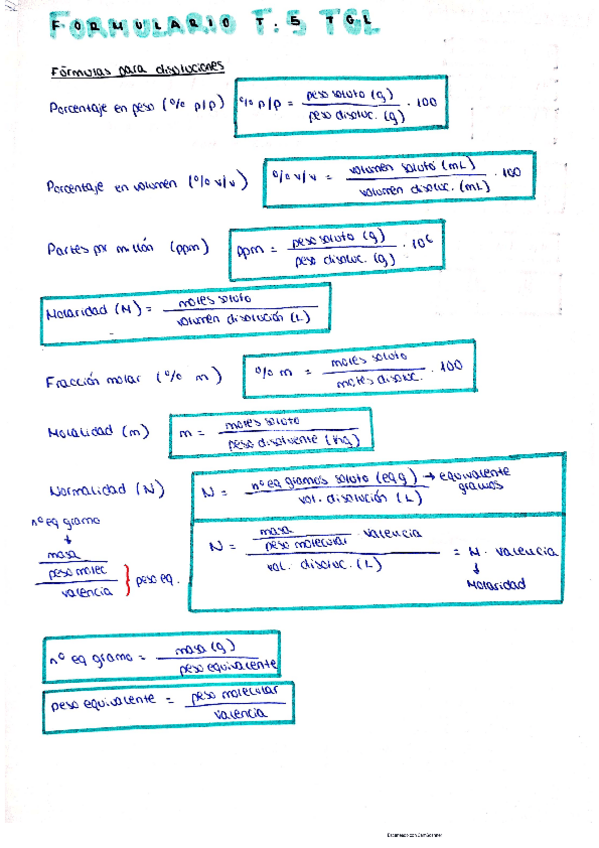 FORMULARIO T.5 TGL
Fórmulas para disoluciones
Porcentaje en peso (% p/p) % p/p = peso soluto (g) / peso disoluc. (g) · 100
Porcentaje en volumen (% v/v) % v/v = volumen soluto (mL) / volumen disoluc. (mL) · 100
Partes por millón (ppm) ppm = peso soluto (g) / peso disoluc. (g) · 10⁶
Molaridad (M) = moles soluto / volumen disolución (L)
Fracción molar (% m) % m = moles soluto / moles disoluc. · 100
Molalidad (m) m = moles soluto / peso disolvente (Kg)
Normalidad (N) N = nº eq gramos soluto (eqg) / vol. disolución (L) → equivalente gramos
nº eq gramo
↓
masa / peso molec / valencia } peso eq.
N = masa / peso molecular · valencia / vol. disoluc. (L) = M · valencia
↓
Molaridad
nº eq gramo = masa (g) / peso equivalente
peso equivalente = peso molecular / valencia
Escaneado con CamScanner